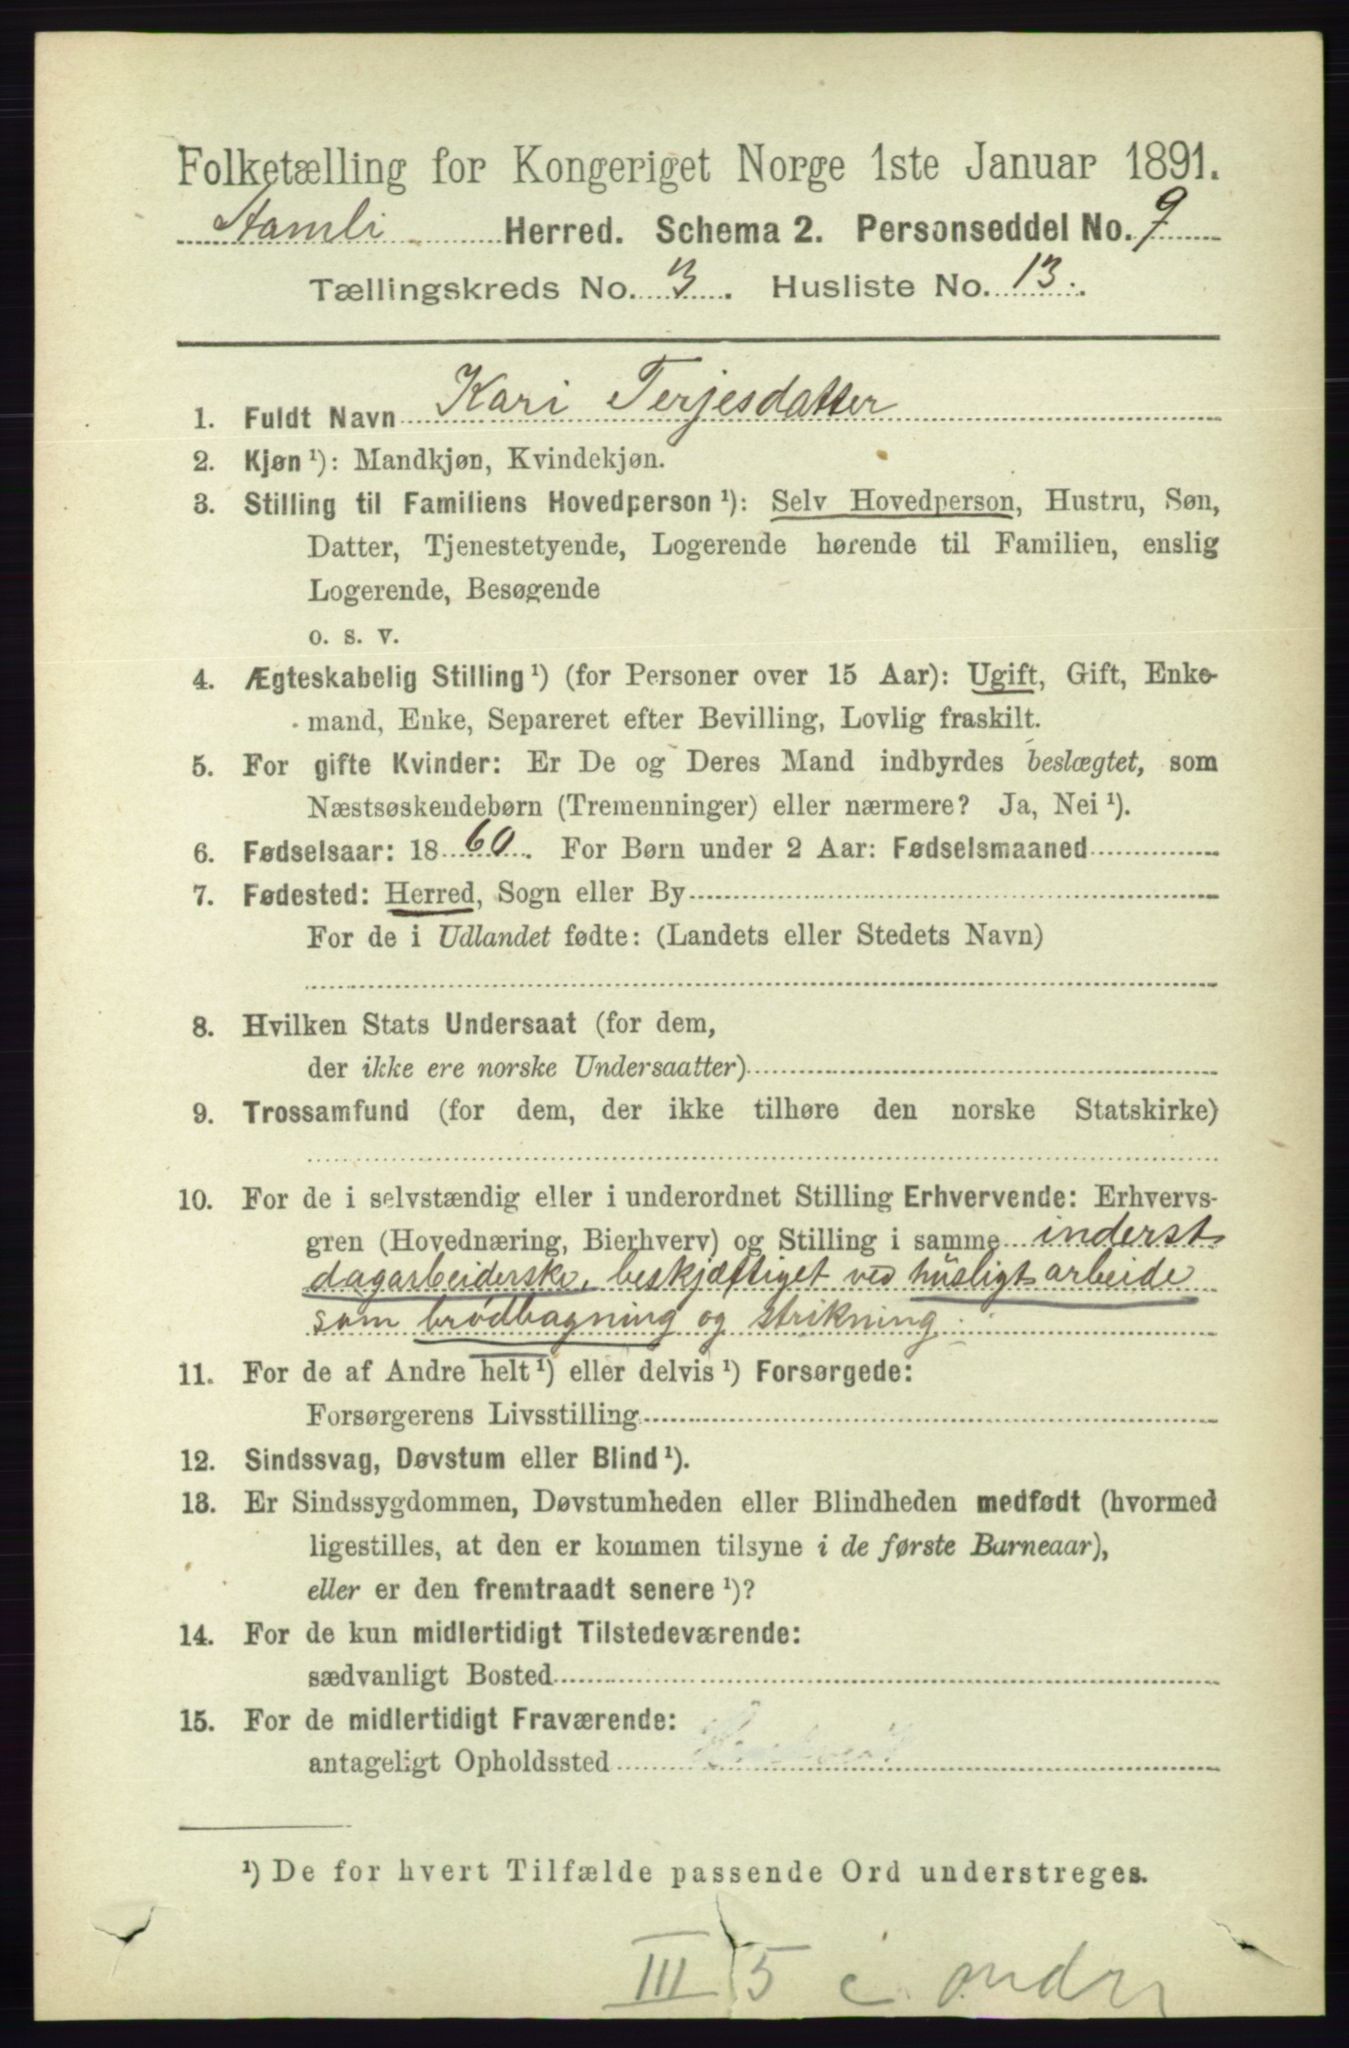 Folketælling for Kongeriget Norge 1ste Januar 1891.
Aamli Herred. Schema 2. Personseddel No. 9
Tællingskreds No. 3. Husliste No. 13.
1. Fuldt Navn Kari Terjesdatter
2. Kjøn ¹): Mandkjøn, Kvindekjøn.
3. Stilling til Familiens Hovedperson ¹): Selv Hovedperson, Hustru, Søn,
Datter, Tjenestetyende, Logerende hørende til Familien, enslig
Logerende, Besøgende
o. s. v.
4. Ægteskabelig Stilling ¹) (for Personer over 15 Aar): Ugift, Gift, Enke-
mand, Enke, Separeret efter Bevilling, Lovlig fraskilt.
5. For gifte Kvinder: Er De og Deres Mand indbyrdes beslægtet, som
Næstsøskendebørn (Tremenninger) eller nærmere? Ja, Nei ¹).
6. Fødselsaar: 1860. For Børn under 2 Aar: Fødselsmaaned
7. Fødested: Herred, Sogn eller By
For de i Udlandet fødte: (Landets eller Stedets Navn)
8. Hvilken Stats Undersaat (for dem,
der ikke ere norske Undersaatter)
9. Trossamfund (for dem, der ikke tilhøre den norske Statskirke)
10. For de i selvstændig eller i underordnet Stilling Erhvervende: Erhvervs-
gren (Hovednæring, Bierhverv) og Stilling i samme inderst
dagarbeiderske, beskjæftiget ved husligt arbeide
som brødbagning og strikning.
11. For de af Andre helt ¹) eller delvis ¹) Forsørgede:
Forsørgerens Livsstilling
12. Sindssvag, Døvstum eller Blind ¹).
13. Er Sindssygdommen, Døvstumheden eller Blindheden medfødt (hvormed
ligestilles, at den er kommen tilsyne i de første Barneaar),
eller er den fremtraadt senere ¹)?
14. For de kun midlertidigt Tilstedeværende:
sædvanligt Bosted
15. For de midlertidigt Fraværende:
antageligt Opholdssted
¹) De for hvert Tilfælde passende Ord understreges.
III 5 c